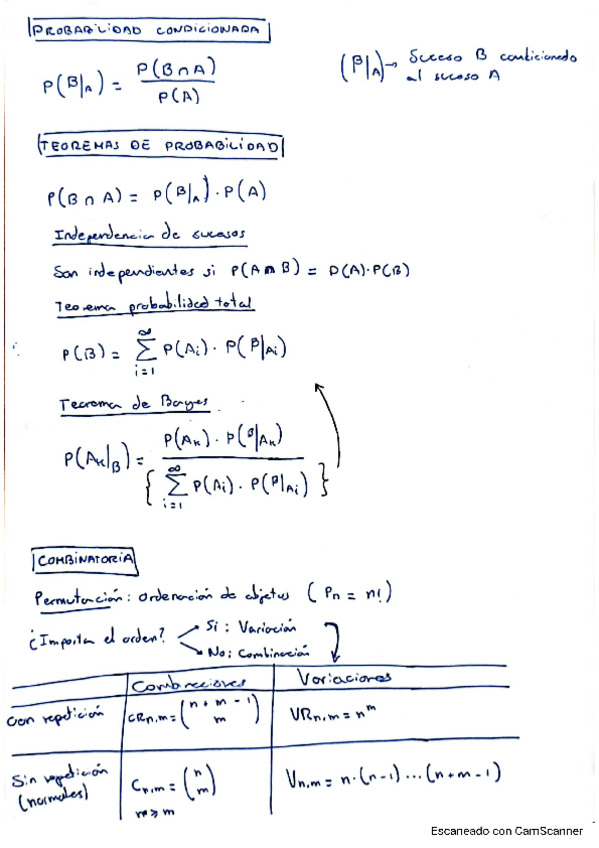 PROBABILIDAD CONDICIONADA
P(B|A) = P(B∩A) / P(A)
(B|A) → Suceso B condicionado
al suceso A
TEOREMAS DE PROBABILIDAD
P(B∩A) = P(B|A)·P(A)
Independencia de sucesos
Son independientes si P(A∩B) = P(A)·P(B)
Teorema probabilidad total
P(B) = ∑ i=1 ∞ P(Ai)·P(B|Ai)
Teorema de Bayes
P(AK|B) = P(AK)·P(B|AK) / { ∑ i=1 ∞ P(Ai)·P(B|Ai) }
COMBINATORIA
Permutación: Ordenación de objetus (Pn = n!)
¿Importa el orden?
Si: Variación
No: Combinación
Combinaciones Variaciones
con repetición CRn,m = (n+m-1 m) VRn,m = n^m
Sin repetición
(normales)
Cn,m = (n m)
m≥m
Vn,m = n·(n-1)...(n+m-1)
Escaneado con CamScanner